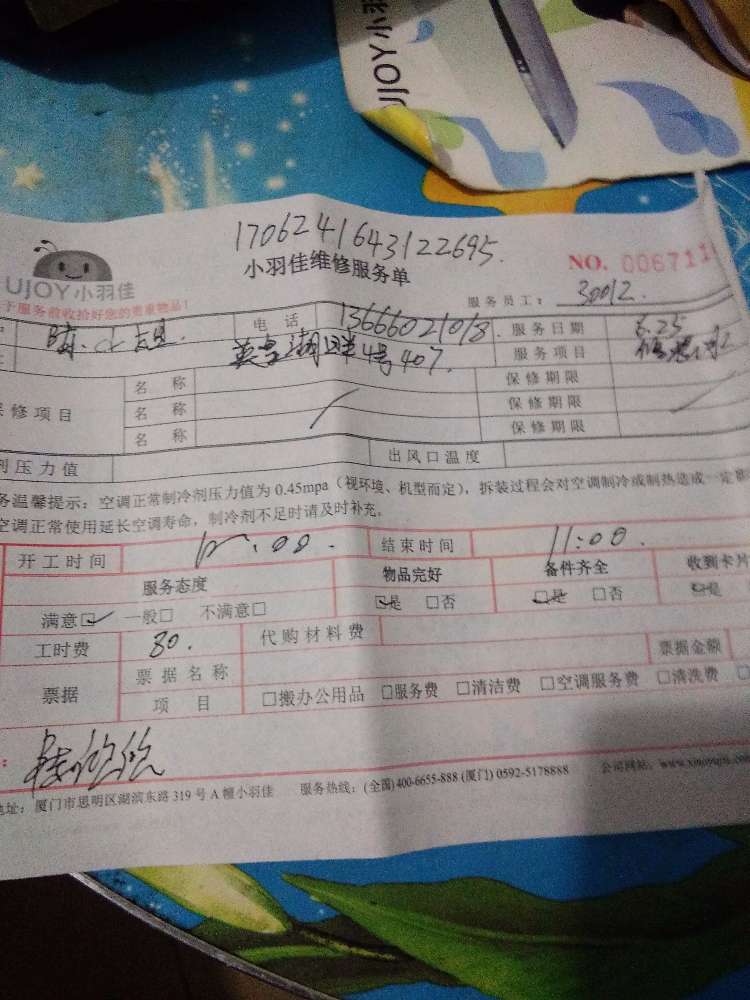 UJOY小
1706241643122695.
小羽佳维修服务单
NO. 006711
UJOY小羽佳
服务员工： 30012.
于服务前收拾好您的贵重物品！
电 话 13666021018. 服务日期 6.25
4号407. 服务项目
名 称 保修期限
修项目 名 称 保修期限
名 称 保修期限
压力值 出风口温度
务温馨提示：空调正常制冷剂压力值为 0.45mpa（视环境、机型而定），拆装过程会对空调制冷或制热造成一定
空调正常使用延长空调寿命，制冷剂不足时请及时补充。
开工时间 :00. 结束时间 11:00.
服务态度 物品完好 备件齐全 收到卡片
满意☑ 一般□ 不满意□ ☑是 □否 ☑是 □否 ☑是
工时费 80. 代购材料费
票据 票据名称 票据金额
项 目 □搬办公用品 □服务费 □清洁费 □空调服务费 □清洗费
地址：厦门市思明区湖滨东路 319 号 A 幢小羽佳 服务热线：(全国)400-6655-888 (厦门) 0592-5178888 公司网站：www.xiaoyujia.com